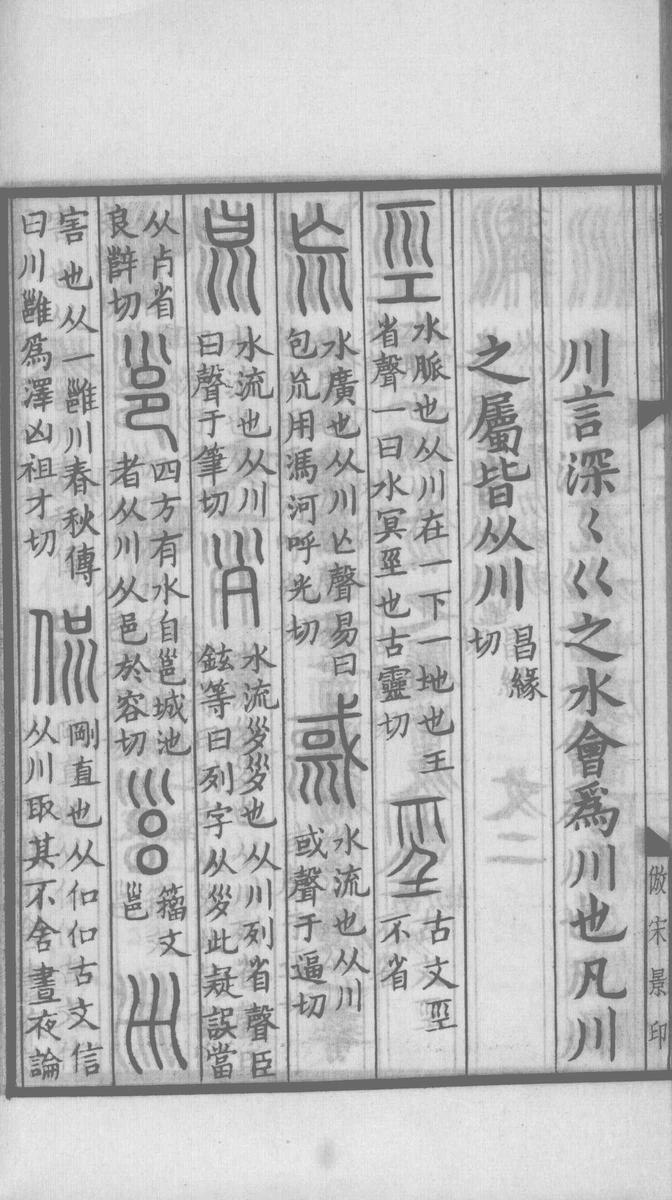 川言深〱巜之水會爲川也凡川
之屬皆从川昌緣切
巠水脈也从川在一下一地也王省聲一曰水冥巠也古靈切
𡿭古文巠不省
㠩水廣也从川亡聲易曰包㠩用馮河呼光切
惐水流也从川或聲于逼切
㫕水流也从川曰聲于筆切
𡿪水流𡿪𡿪也从川列省聲臣鉉等曰列字从𡿪此疑誤當从歺省良辥切
邕四方有水自邕城池者从川从邑於容切
𡿷籀文邕
𡿧害也从一雝川春秋傳曰川雝爲澤凶祖才切
侃剛直也从㐰㐰古文信从川取其不舍晝夜論
倣宋景印